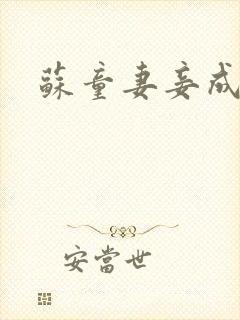 蘇童妻妾成
安當世